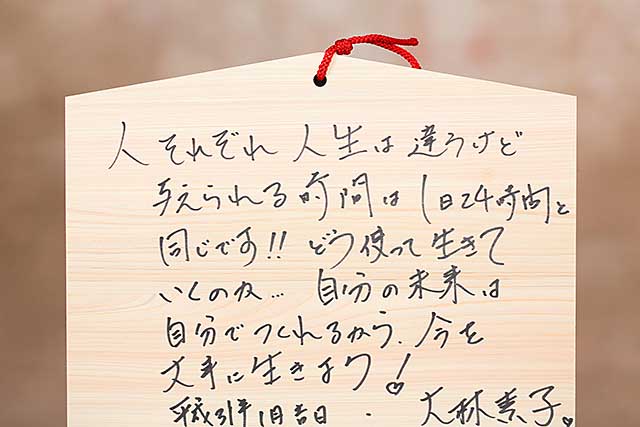 人それぞれ人生は違うけど
与えられる時間は1日24時間と
同じです!!どう使って生きて
いくのか…自分の未来は
自分でつくれるから、今を
大事に生きよう!♡
平成31年1月吉日 . 大林素子♡